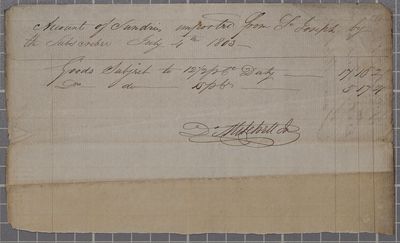 Account of Sundries imported from St Joseph by
the Subscriber July 4th 1803
Goods Subject to 12½ pCt Duty 17 10 2
do 5 17
D. Mitchell Jr